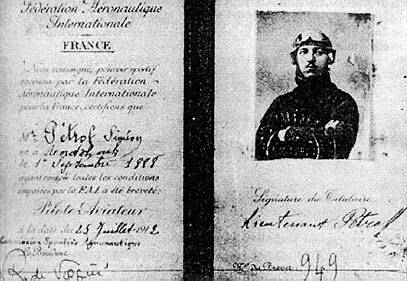 Fédération Aéronautique
Internationale
FRANCE
Nous soussignés pouvoir sportif
reconnu par la Fédération
Aéronautique Internationale
pour la France, certifions que:
Mr Pétrof Siméon
né à
le 1er Septembre 1888
ayant rempli toutes les conditions
imposées par la F.A.I. a été breveté:
Pilote-Aviateur
à la date du 25 Juillet 1912
Commission Sportive Aéronautique
Le Président
Signature du Titulaire
Lieutenant Pétroff
No du Brevet 949